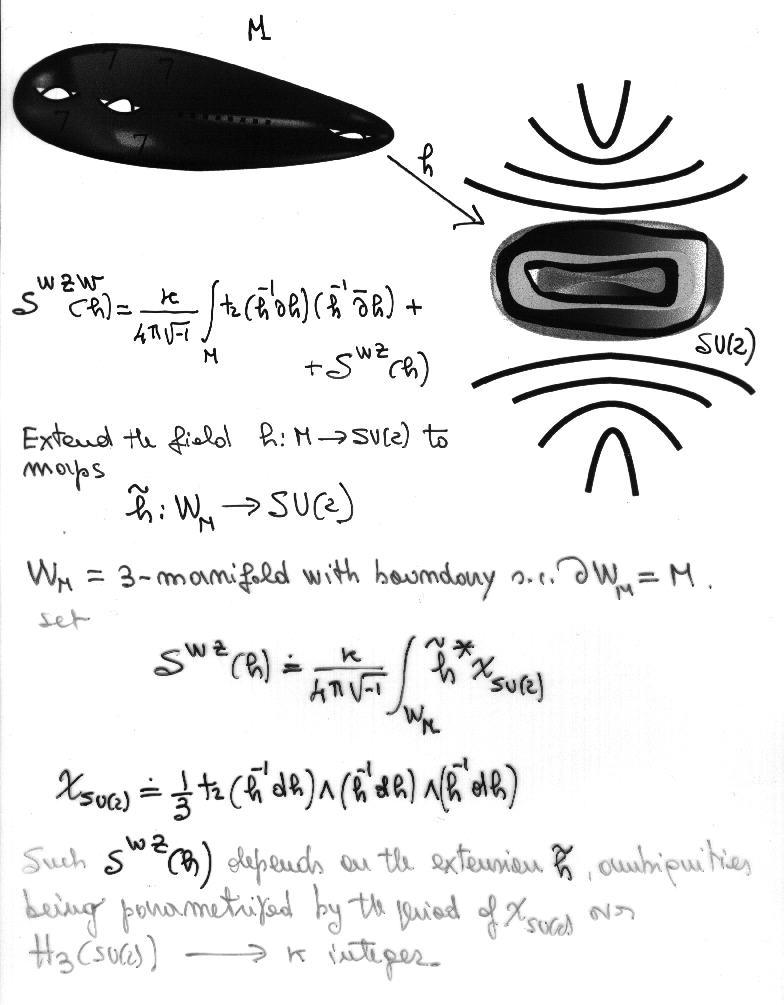 M
h
SU(2)
S^{WZW}(h) = \frac{κ}{4π\sqrt{-1}} ∫_M tr(h^{-1}∂h)(h^{-1}\bar{∂}h) +
+ S^{WZ}(h)
Extend the field h: M → SU(2) to
maps
\tilde{h}: W_M → SU(2)
W_M = 3-manifold with boundary s.t. ∂W_M = M.
set
S^{WZ}(h) ≐ \frac{κ}{4π\sqrt{-1}} ∫_{W_M} \tilde{h}^* χ_{SU(2)}
χ_{SU(2)} ≐ \frac{1}{3} tr(h^{-1}dh) ∧ (h^{-1}dh) ∧ (h^{-1}dh)
Such S^{WZ}(h) depends on the extension \tilde{h}, ambiguities
being parametrized by the period of χ_{SU(2)} over
H_3(SU(2)) ⟶ κ integer